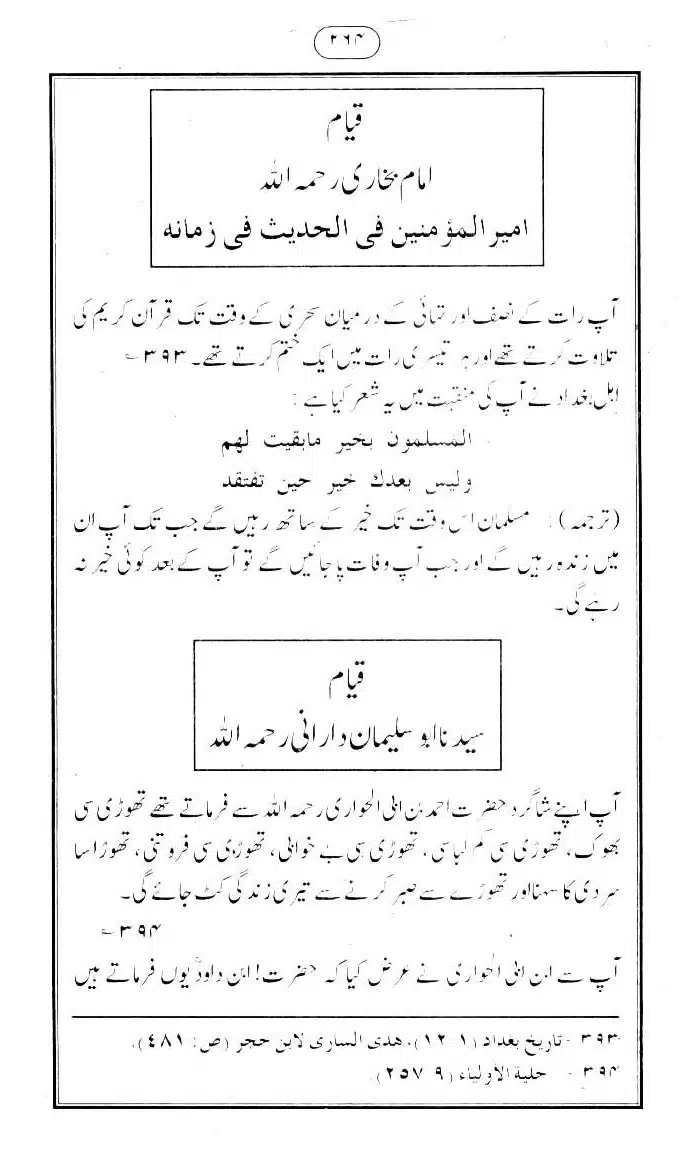 ۲۶۴
قیام
امام بخاری رحمہ اللہ
امیر المؤمنین فی الحدیث فی زمانہ
آپ رات کے نصف اور تہائی کے درمیان سحری کے وقت تک قرآن کریم کی
تلاوت کرتے تھے اور ہر تیسری رات میں ایک ختم کرتے تھے۔ ۳۹۳؎
اہل بغداد نے آپ کی منقبت میں یہ شعر کہا ہے :
المسلمون بخیر مابقیت لھم
ولیس بعدك خیر حین تفتقد
(ترجمہ) : مسلمان اس وقت تک خیر کے ساتھ رہیں گے جب تک آپ ان
میں زندہ رہیں گے اور جب آپ وفات پا جائیں گے تو آپ کے بعد کوئی خیر نہ
رہے گی۔
قیام
سیدنا ابو سلیمان دارانی رحمہ اللہ
آپ اپنے شاگرد حضرت احمد بن ابی الحواری رحمہ اللہ سے فرماتے تھے تھوڑی سی
بھوک، تھوڑی سی کم لباسی، تھوڑی سی بے خوابی، تھوڑی سی فروتنی، تھوڑا سا
سردی کا سہنا اور تھوڑے سے صبر کرنے سے تیری زندگی کٹ جائے گی۔
۳۹۴؎
آپ سے ابن ابی الحواری نے عرض کیا کہ حضرت! ابن داودؒ یوں فرماتے ہیں
۳۹۳- تاریخ بغداد (۱ ۱۲)، ھدی الساری لابن حجر (ص: ٤٨١)،
۳۹۴- حلیة الأولیاء (۹ ۲۵۷)،